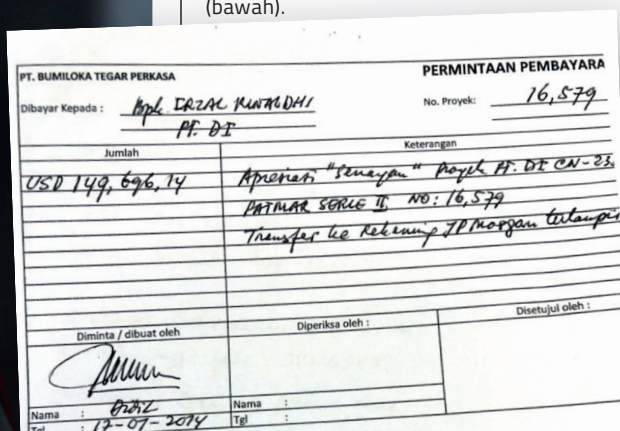 (bawah).
PT. BUMILOKA TEGAR PERKASA
PERMINTAAN PEMBAYARA
Dibayar Kepada : Bpk. IRZAL RINALDHI
PT. DI
No. Proyek: 16,579
Jumlah
Keterangan
USD 149,696,14
Apresiasi "Senayan" Proyek PT. DI CN-23
PATMAR SERIE II NO: 16,579
Transfer ke Rekening JP Morgan terlampir
Diminta / dibuat oleh
Diperiksa oleh :
Disetujui oleh :
Nama :
Tgl : 17-07-2014
Nama :
Tgl :